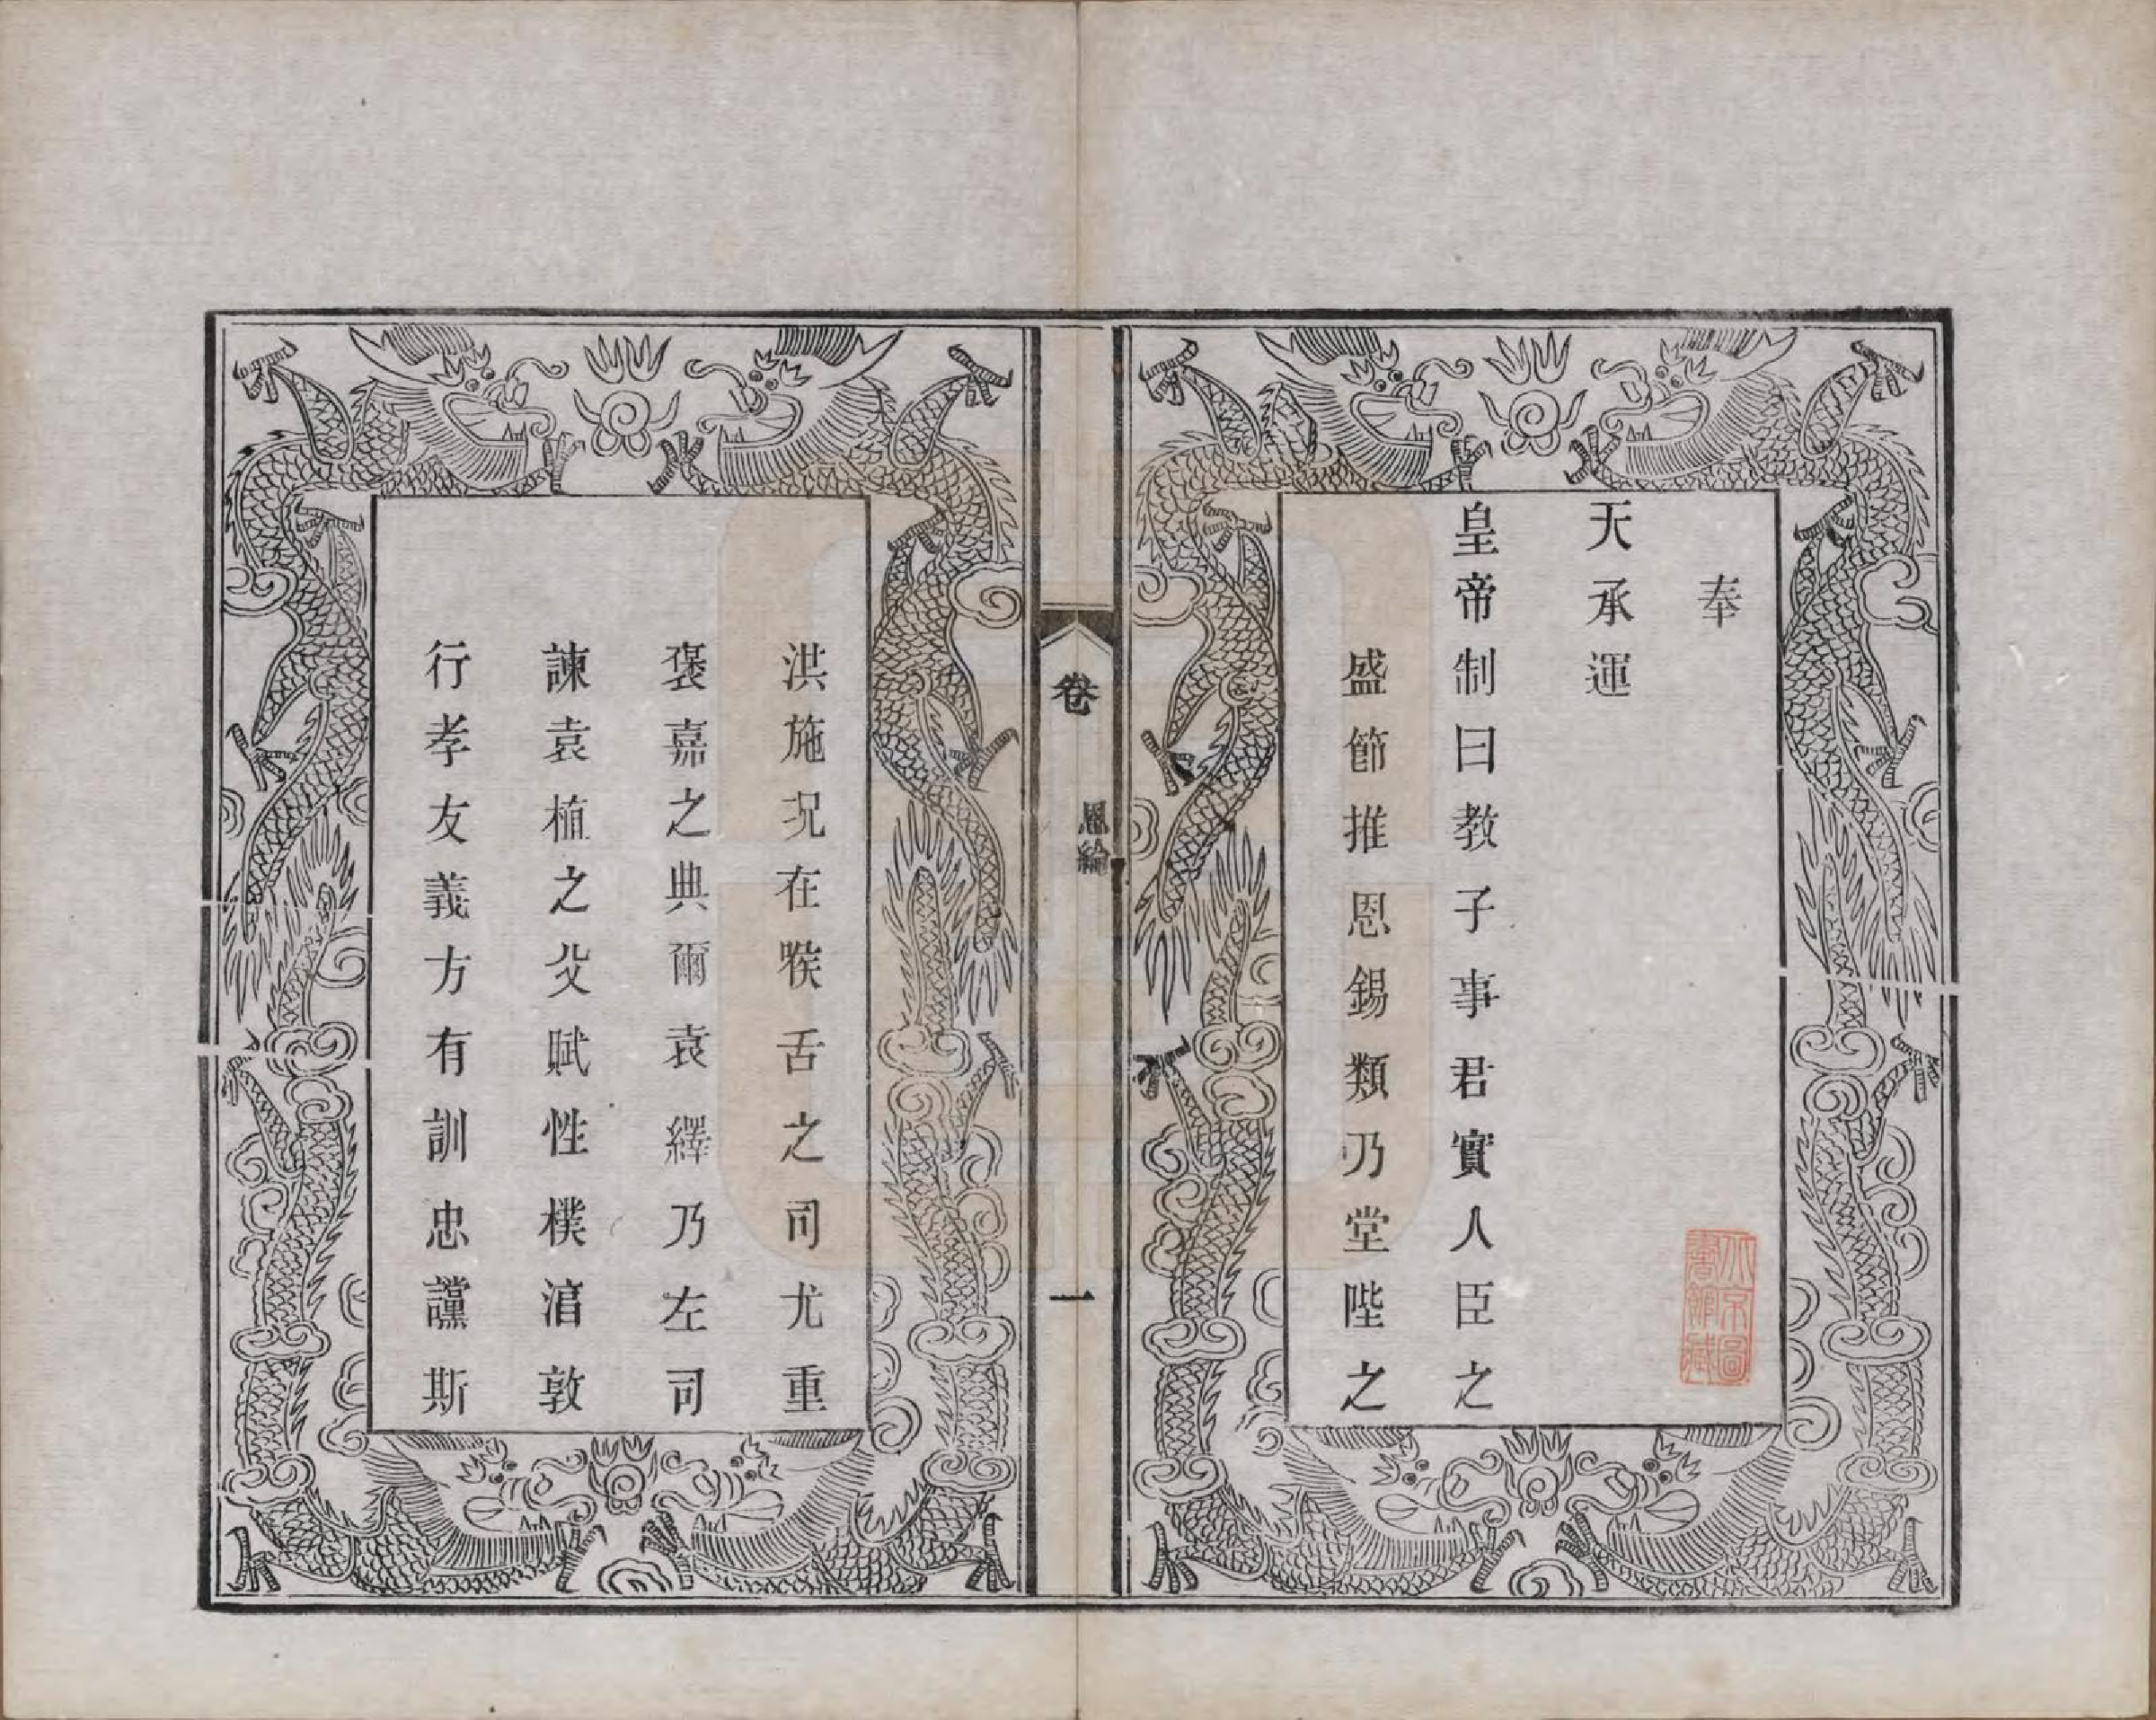 奉
天承運
皇帝制曰教子事君實人臣之
盛節推恩錫類乃堂陛之
卷
恩綸
一
洪施況在喉舌之司尤重
褒嘉之典爾袁繹乃左司
諫袁植之父賦性樸涽敦
行孝友義方有訓忠讜斯